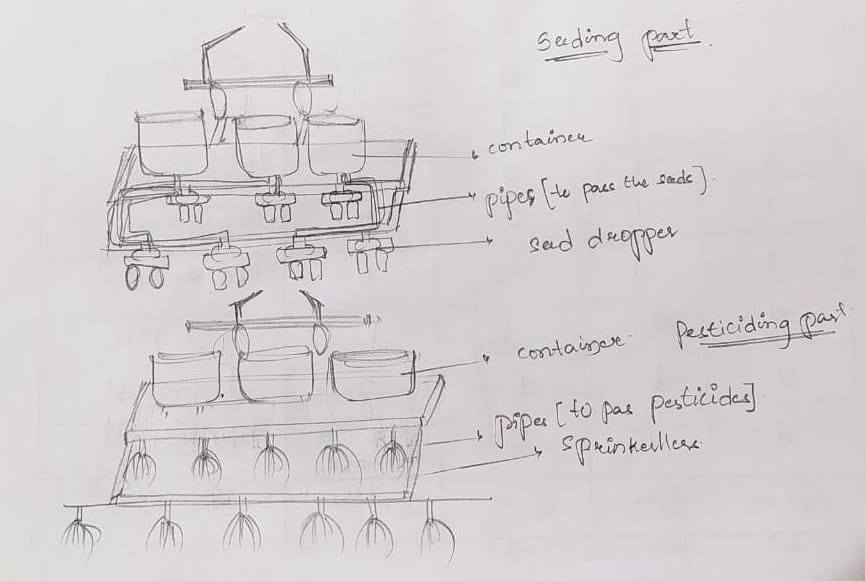 Seeding part.
container
pipes [to pass the seeds].
seed dropper
Pesticiding part.
container.
pipes [to pas pesticides]
sprinkellers.